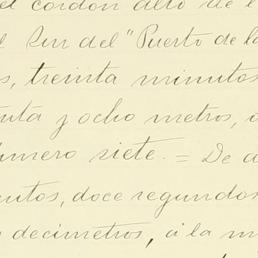 el cordon alto de l
l Sur del "Puerto de la
s, treinta minutos
nta y ocho metros, 
úmero siete. = De
utos, doce segundos
decimetros, á la m